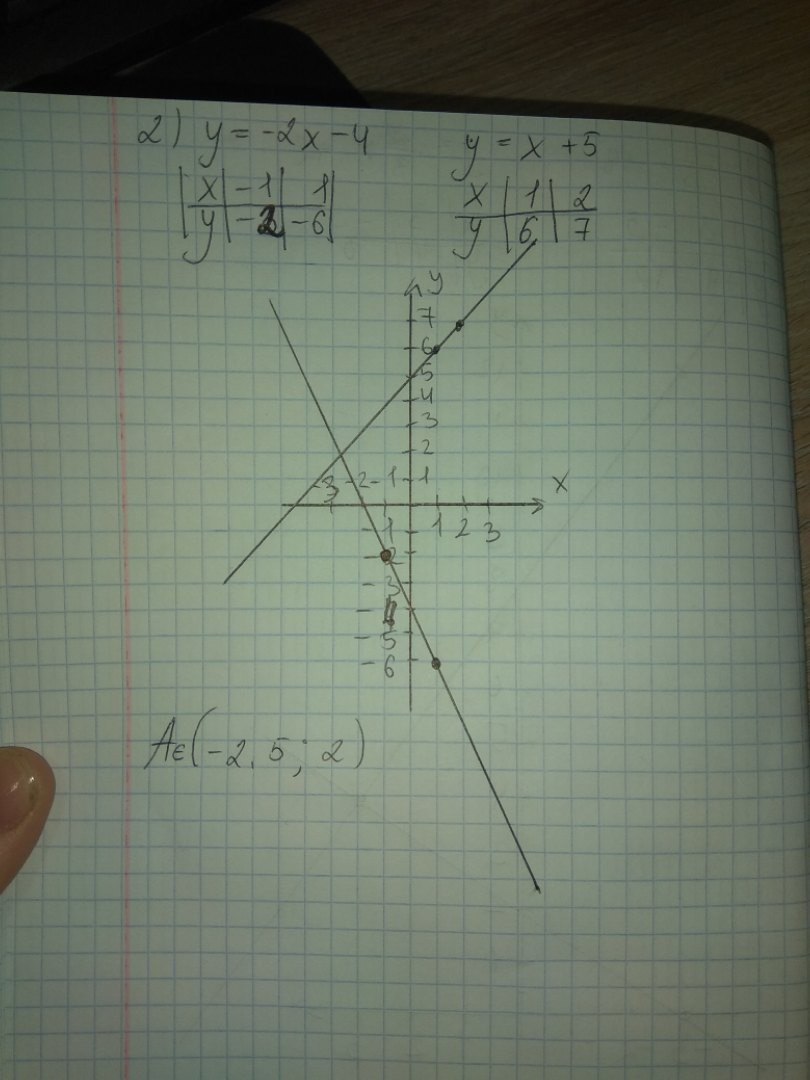 2) y = -2x - 4
y = x + 5
x | -1 | 1
y | -2 | -6
x | 1 | 2
y | 6 | 7
y
7
6
5
4
3
2
-3 -2 -1 1
x
-1 1 2 3
-2
-3
-
-5
-6
A∈(-2,5; 2)